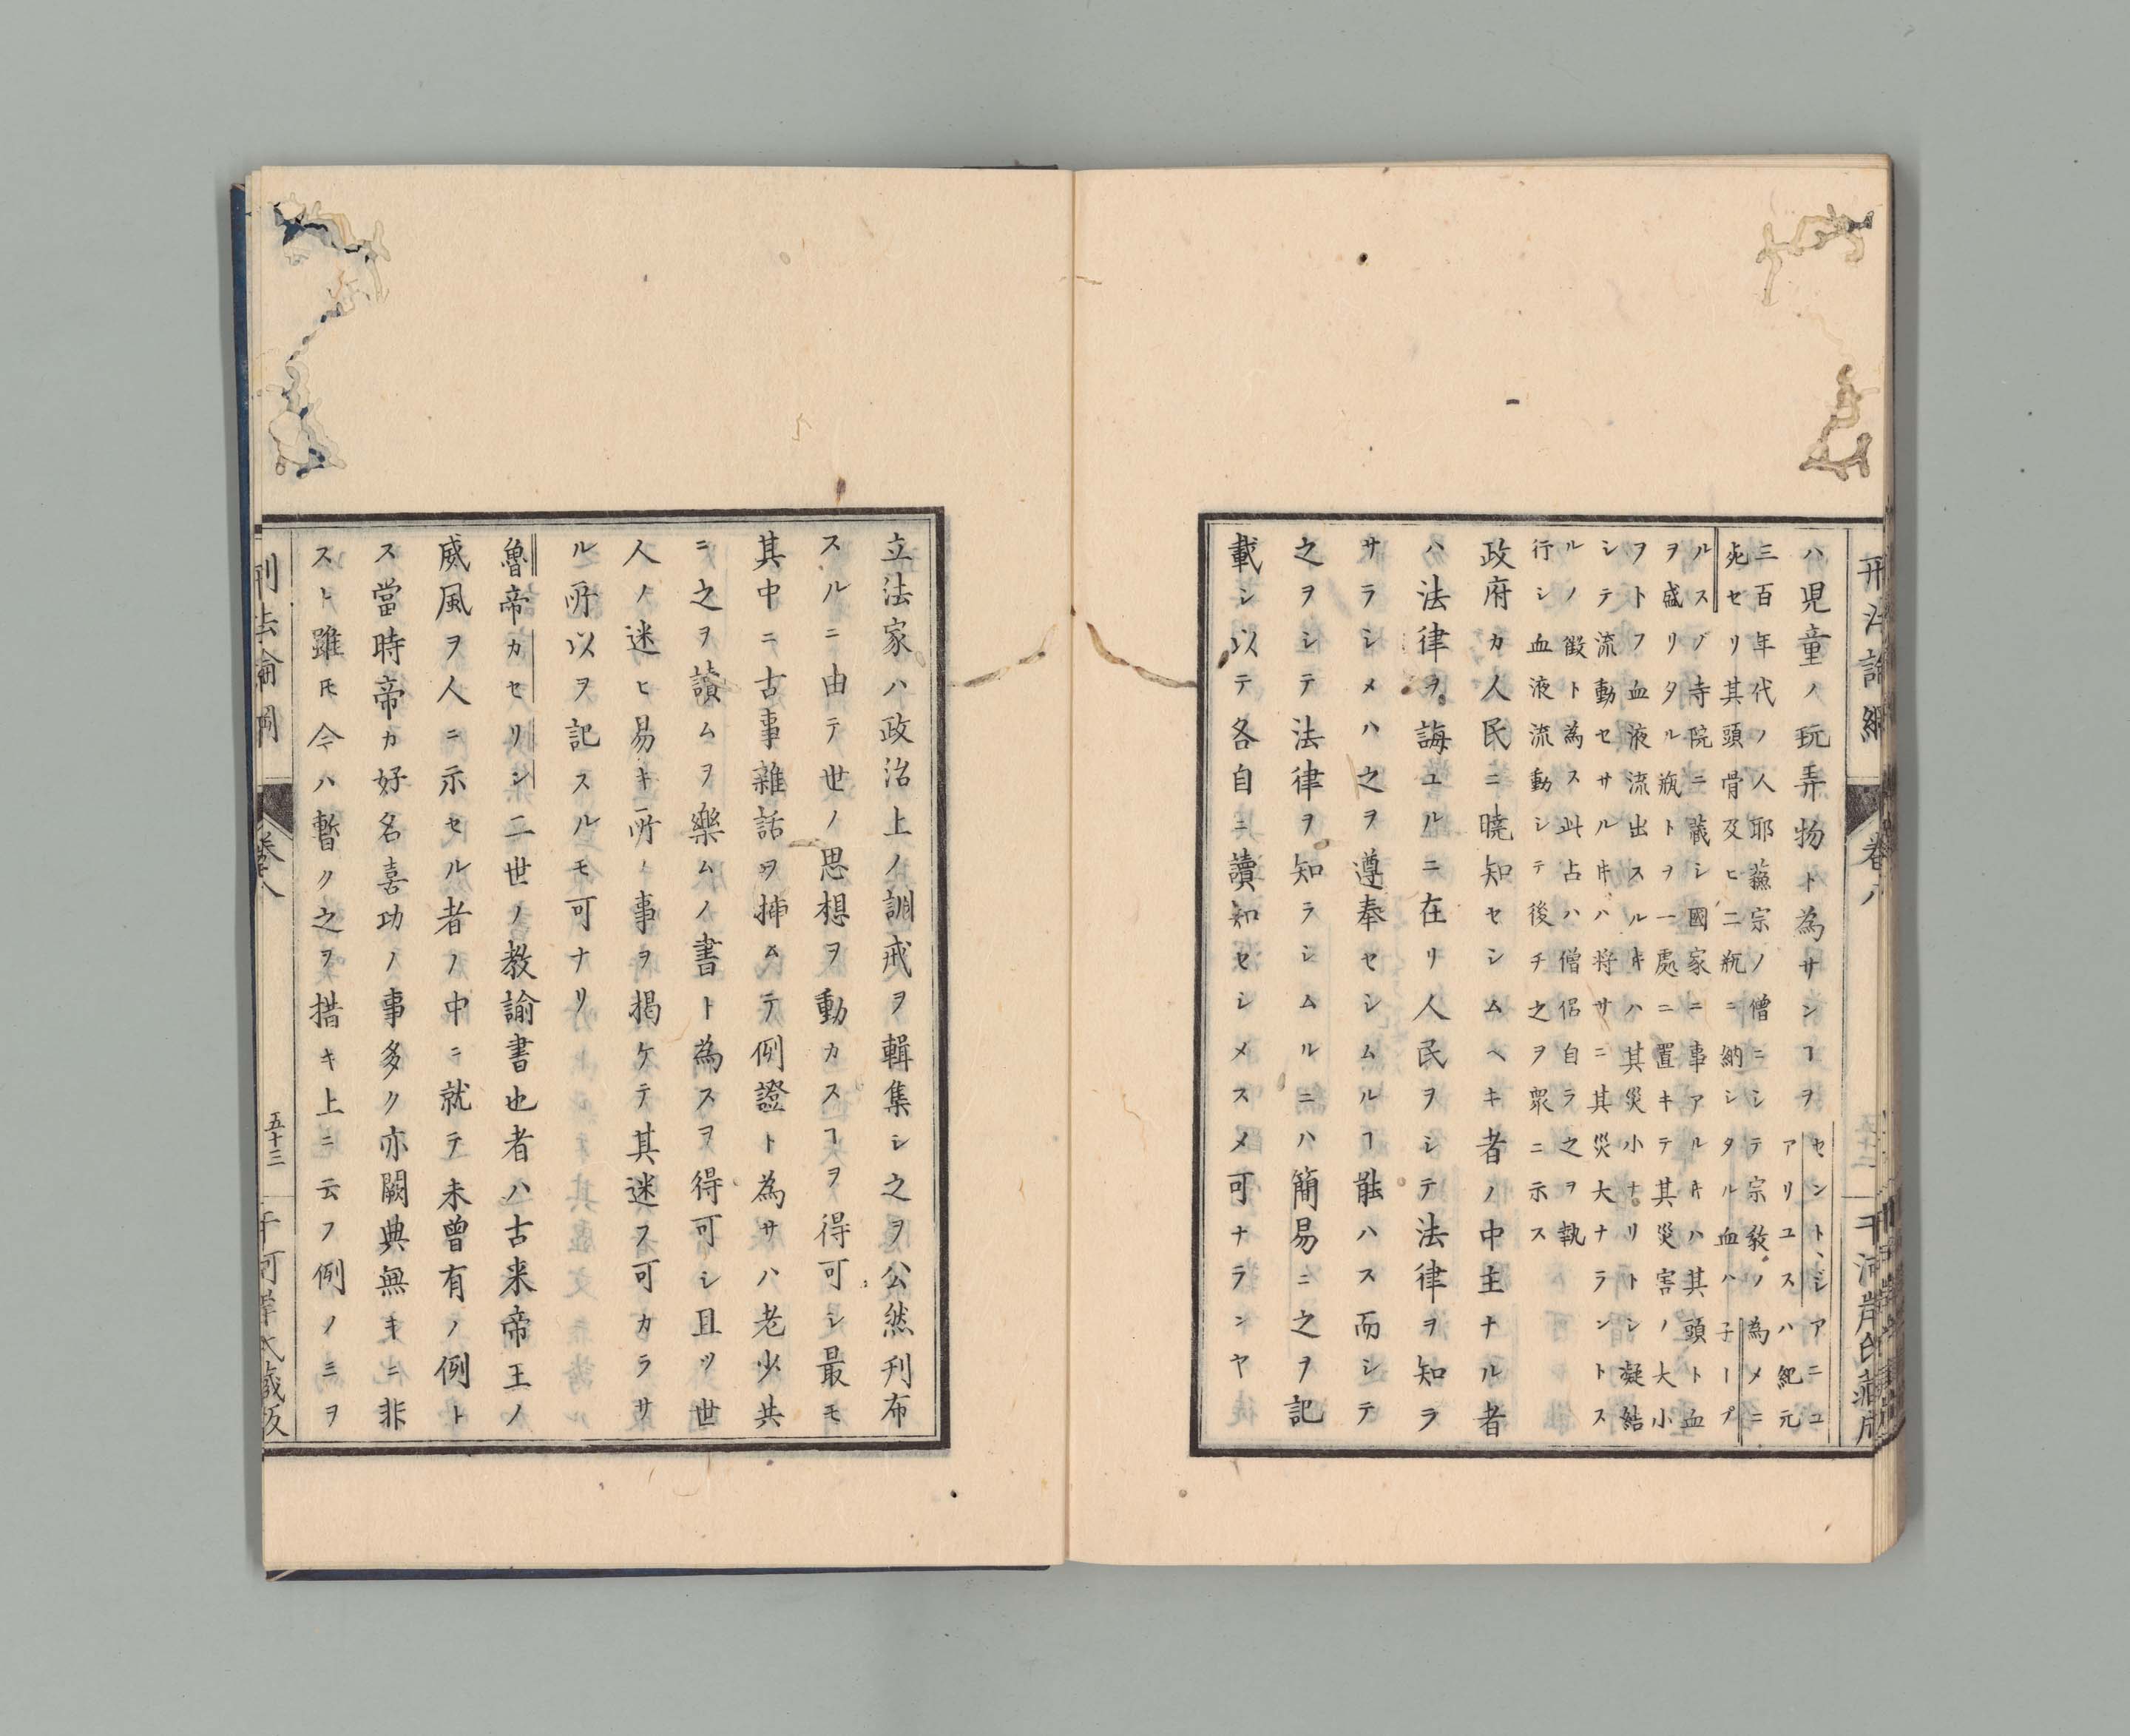 刑法論綱
卷八
ハ児童ノ玩弄物ト為サンヿヲ
セント、ジアニユ
アリユスハ紀元
三百年代ノ人耶蘓宗ノ僧ニシテ宗教ノ為メニ
死セリ其頭骨及ヒ二瓶ニ納シタル血ハ子ープ
ルスノ寺院ニ蔵シ國家ニ事アルキハ其頭ト血
ヲ盛リタル瓶トヲ一處ニ置キテ其災害ノ大小
ヲトフ血液流出スルキハ其災小ナリトシ凝結
シテ流動セサルキハ将サニ其災大ナラントス
ルノ徴ト為ス此占ハ僧侶自ラ之ヲ執
行シ血液流動シテ後チ之ヲ衆ニ示ス
政府カ人民ニ暁知セシムヘキ者ノ中主ナル者
ハ法律ヲ誨ユルニ在リ人民ヲシテ法律ヲ知ラ
サラシメハ之ヲ遵奉セシムルヿ能ハス而シテ
之ヲシテ法律ヲ知ラシムルニハ簡易ニ之ヲ記
載シ以テ各自ニ讀知セシメスメ可ナランヤ
立法家ハ政治上ノ訓戒ヲ輯集シ之ヲ公然刋布
スルニ由テ世ノ思想ヲ動カスヿヲ得可シ最モ
其中ニ古事雜話ヲ挿ムテ例證ト為サハ老少共
ニ之ヲ讀ムヲ樂ムノ書ト為スヲ得可シ且ツ世
人ノ迷ヒ易キ所ノ事ヲ掲ケテ其迷フ可カラサ
ル所以ヲ記スルモ可ナリ
魯帝カセリシ二世ノ教諭書也者ハ古来帝王ノ
威風ヲ人ニ示セル者ノ中ニ就テ未曾有ノ例ト
ス當時帝カ好名喜功ノ事多ク亦闕典無キニ非
スト雖𪜈今ハ暫ク之ヲ措キ上ニ云フ例ノミヲ
刑法論綱
卷八
五十三